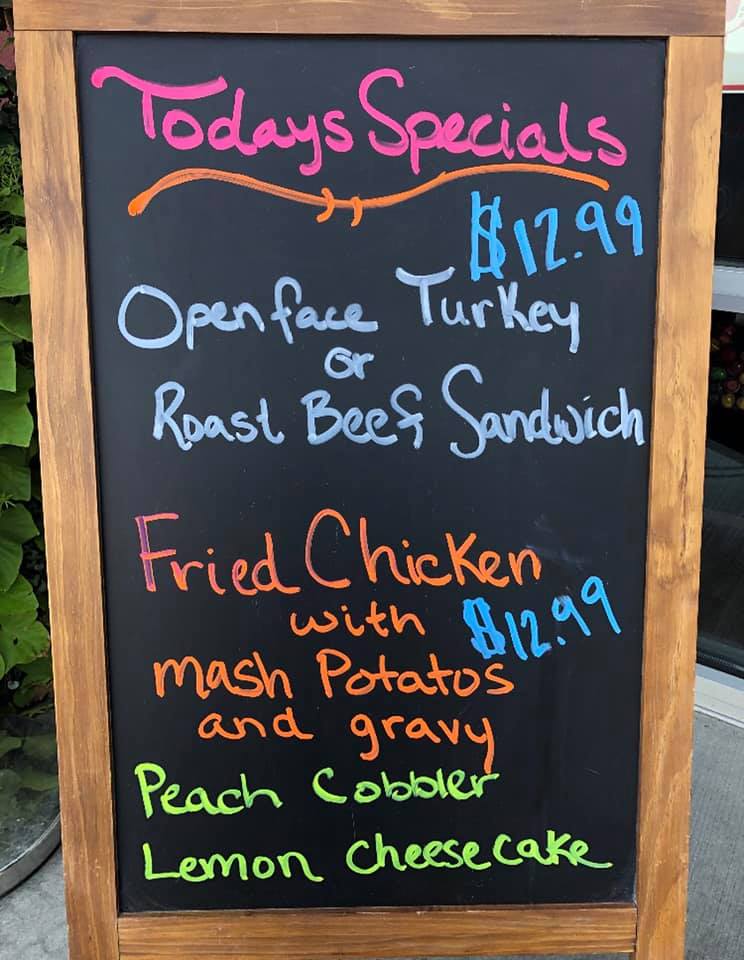 Todays Specials
$12.99
Open face Turkey
or
Roast Beef Sandwich
Fried Chicken
with $12.99
mash Potatos
and gravy
Peach Cobbler
Lemon cheesecake